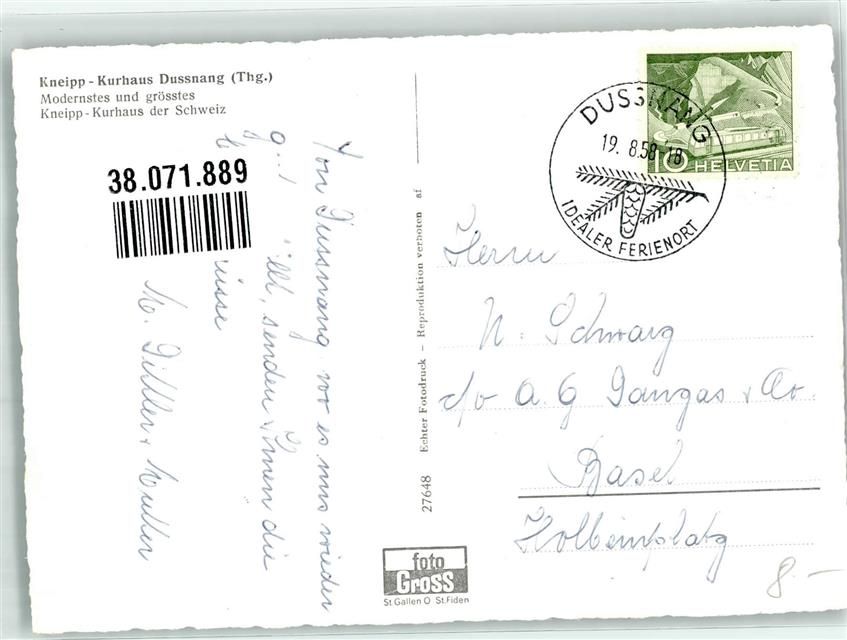 Kneipp - Kurhaus Dussnang (Thg.)
Modernstes und grösstes
Kneipp - Kurhaus der Schweiz
38.071.889
Von Dussnang wo es uns wieder
senden Ihnen die
M.
Mutter
Echter Fotodruck - Reproduktion verboten af
27648
foto
Gross
St. Gallen O St. Fiden
DUSSNANG
19. 8.58-18
IDEALER FERIENORT
10 HELVETIA
Herrn
N. Schwarz
c/o A. G Danzas & Co.
Basel
Holbeinplatz
8.-